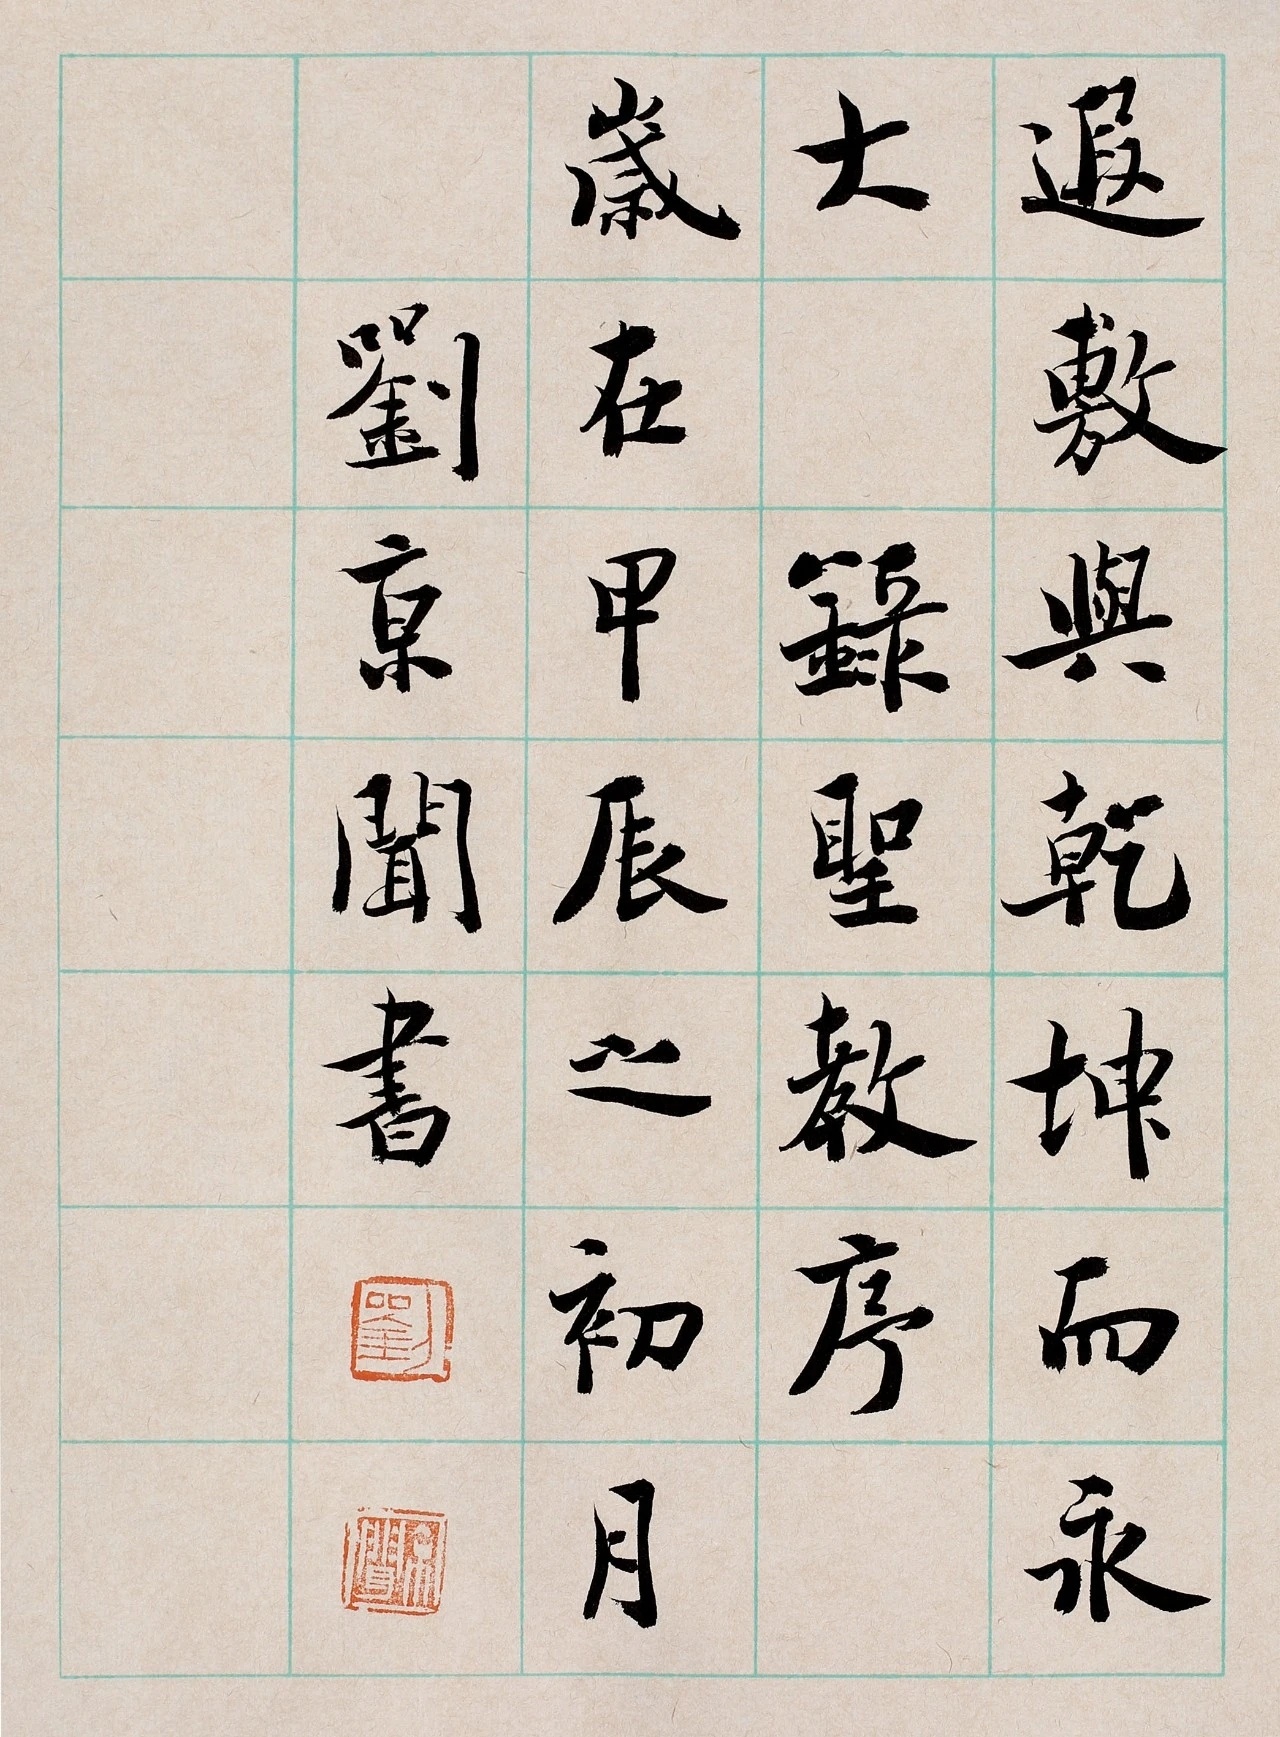 遐敷與乾坤而永
大 錄聖教序
歲在甲辰之初月
劉京聞書
劉
京聞